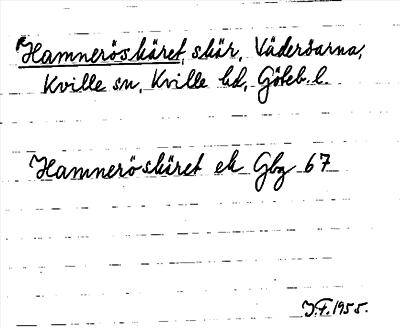 Hamneröskäret, skär, Väderöarna,
Kville sn, Kville hd, Göteb. l.
Hamneröskäret ek Gbg 67
J.F. 1955.